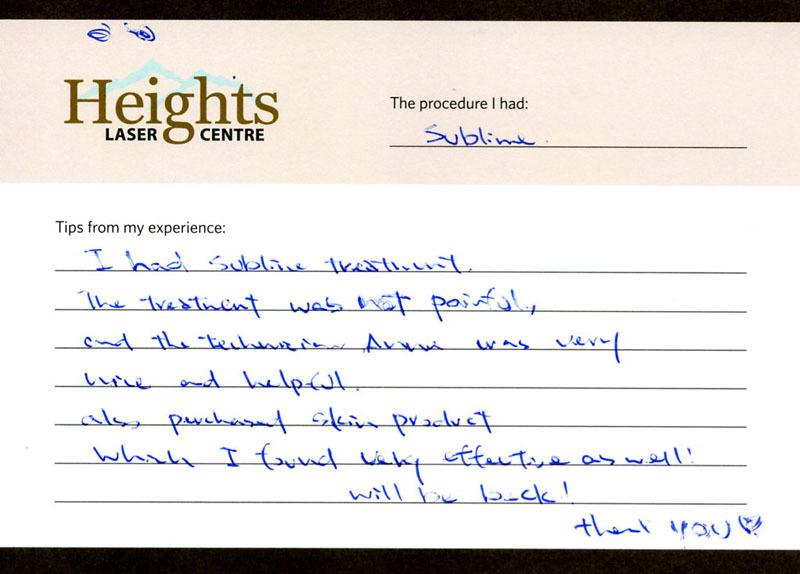 Heights
LASER CENTRE
The procedure I had:
Sublime.
Tips from my experience:
I had sublime treatment.
The treatment was not painful,
and the technician was very
nice and helpful.
also purchased skin product
which I found very effective as well!
will be back!
thank you